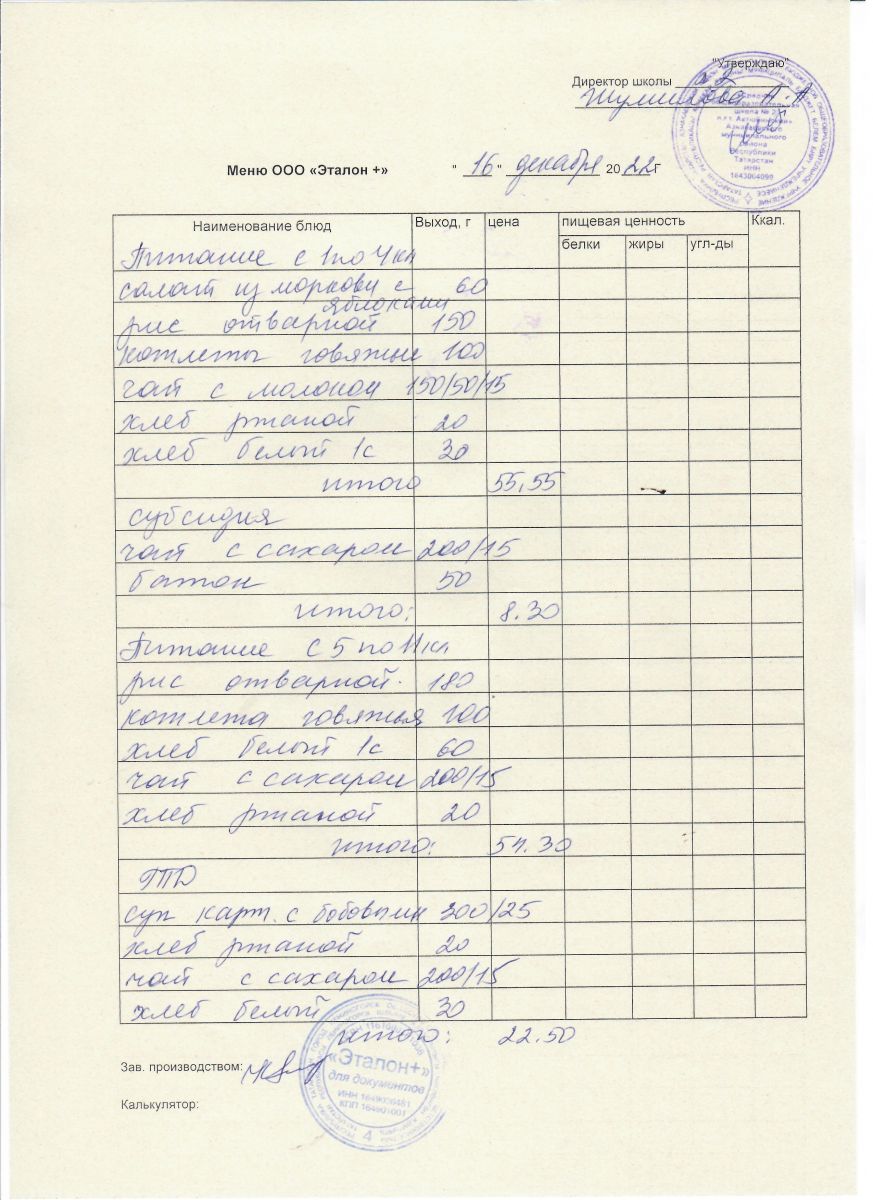 "Утверждаю"
Директор школы
Меню ООО «Эталон +» " 16 " декабря 20 22г
Наименование блюд Выход, г цена пищевая ценность Ккал.
белки жиры угл-ды
Питание с 1 по 4 кл
салат из моркови с 60
яблоками
рис отварной 150
котлеты говяжьи 100
чай с молоком 150/50/15
хлеб ржаной 20
хлеб белый 1с 30
итого 55,55
субсидия
чай с сахаром 200/15
батон 50
итого: 8.30
Питание с 5 по 11 кл
рис отварной. 180
котлета говяжья 100
хлеб белый 1с 60
чай с сахаром 200/15
хлеб ржаной 20
итого: 54.30
ГПД
суп карт. с бобовыми 300/25
хлеб ржаной 20
чай с сахаром 200/15
хлеб белый 30
итого: 22.50
Зав. производством:
«Эталон+»
для документов
КПП 164901001
Калькулятор: